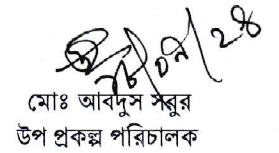 মোঃ আবদুস সবুর
উপ প্রকল্প পরিচালক